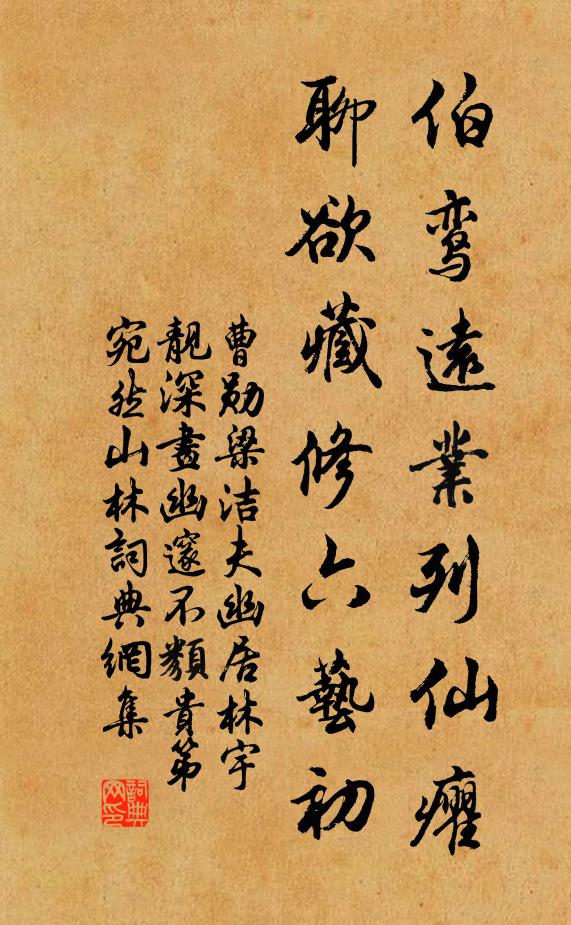 伯鸾遠業列仙癯
聊欲藏修六藝初
曹勋梁洁夫幽居林宇
靓深畫幽邃不類貴第
宛然山林詞典網集
詞典网印